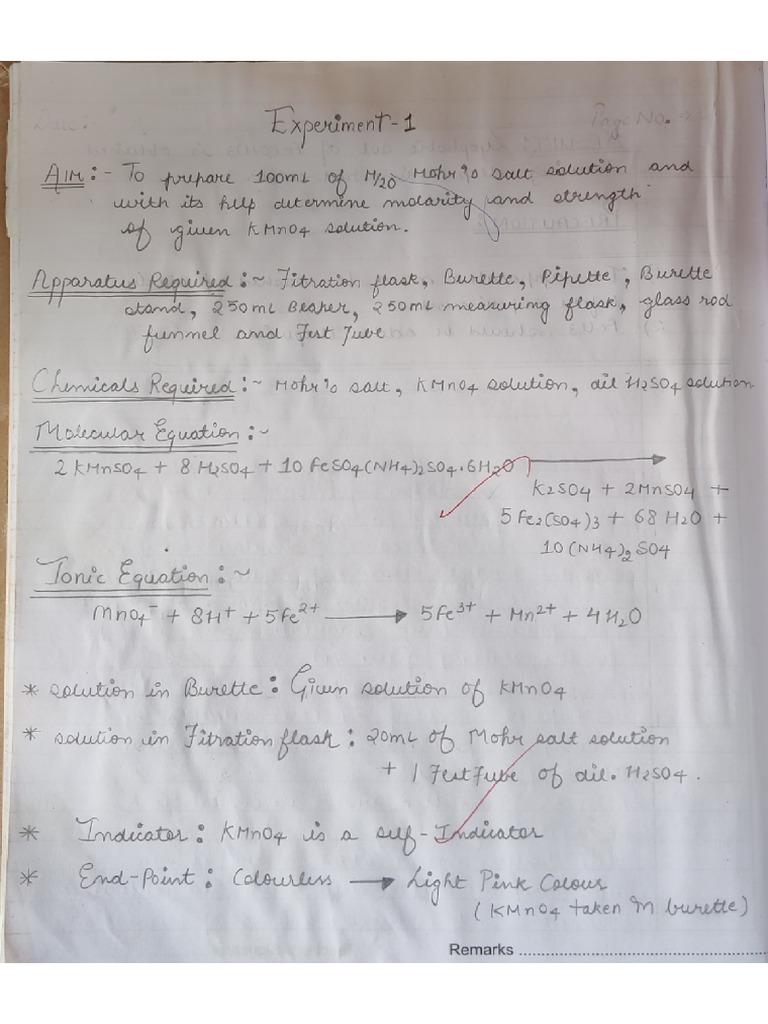 Experiment-1
AIM:- To prepare 100mL of M/20 Mohr's salt solution and
with its help determine molarity and strength
of given KMnO4 solution.
Apparatus Required:~ Titration flask, Burette, Pipette, Burette
stand, 250mL Beaker, 250mL measuring flask, glass rod
funnel and Test Tube
Chemicals Required:~ Mohr's salt, KMnO4 solution, dil H2SO4 solution
Molecular Equation:~
2 KMnSO4 + 8 H2SO4 + 10 FeSO4(NH4)2SO4·6H2O ⟶
K2SO4 + 2MnSO4 +
5 Fe2(SO4)3 + 68 H2O +
10 (NH4)2 SO4
Ionic Equation:~
MnO4⁻ + 8H⁺ + 5Fe²⁺ ⟶ 5Fe³⁺ + Mn²⁺ + 4H2O
* solution in Burette: Given solution of KMnO4
* solution in Titration flask: 20mL of Mohr salt solution
+ 1 Test Tube of dil. H2SO4.
* Indicator: KMnO4 is a self-Indicator
* End-Point: Colourless ⟶ Light Pink Colour
(KMnO4 taken in burette)
Remarks